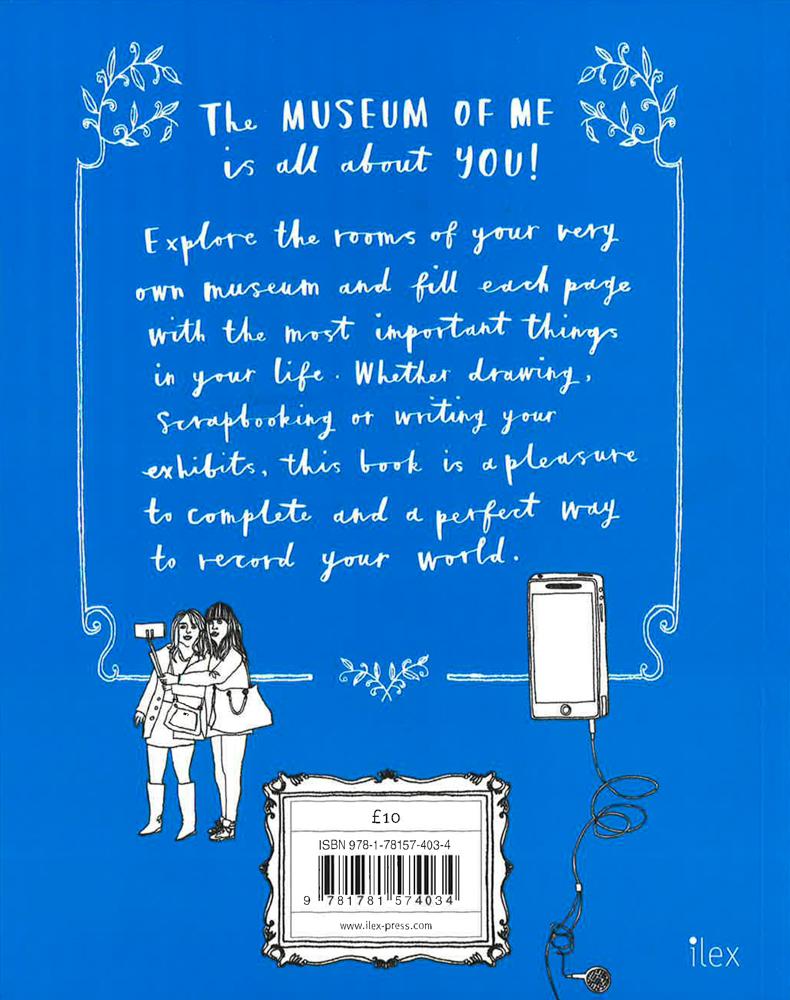 The MUSEUM OF ME
is all about YOU!
Explore the rooms of your very
own museum and fill each page
with the most important things
in your life. Whether drawing,
Scrapbooking or writing your
exhibits, this book is a pleasure
to complete and a perfect way
to record your world.
£10
ISBN 978-1-78157-403-4
9 781781 574034
www.ilex-press.com
ilex